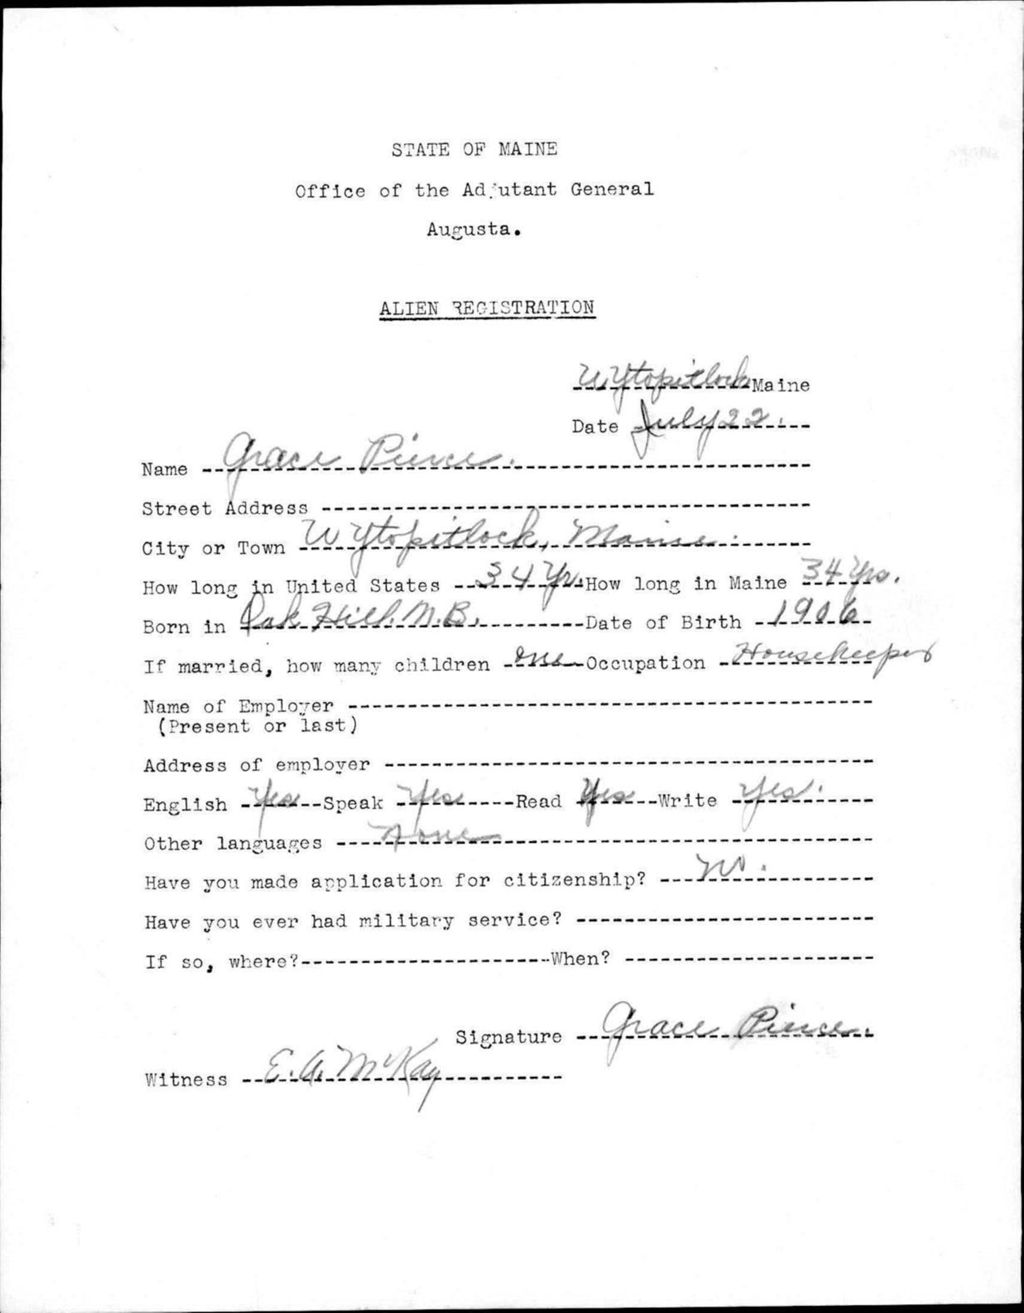 STATE OF MAINE
Office of the Adjutant General
Augusta.
ALIEN REGISTRATION
Wytopitlock Maine
Date July 22.
Name Grace Pierce.
Street Address
City or Town Wytopitlock, Maine.
How long in United States 34 Yr. How long in Maine 34 Yrs.
Born in Oak Hill N.B. Date of Birth 1906
If married, how many children One Occupation Housekeeper
Name of Employer
(Present or last)
Address of employer
English Yes Speak Yes Read Yes Write Yes.
Other languages None
Have you made application for citizenship? No.
Have you ever had military service?
If so, where? When?
Signature Grace Pierce.
Witness E. A. McKay